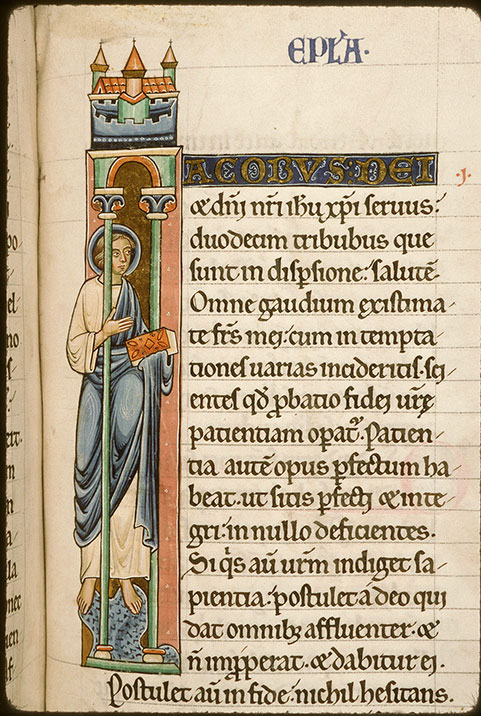 EPL'A·
ACOBUS: DEI
.j.
& dñi nr̃i ihũ xp̃i seruus:
duodecim tribubus que
sunt in disp̱sione: salutē.
Omne gaudium exıstima-
te fr̃s mei: cum in tempta-
tiones uarias incideritis. sci-
entes qđ ꝓbatio fidei ur̃ę
patientiam opat᷑. Patien-
tia autē opus p̱fectum ha-
beat. ut sitis p̱fecti & inte-
gri: in nullo deficientes.
Si q̾s aũ ur̃m indiget sa-
pientia: postulet a deo qui
dat omnibꝫ affluenter. &
ñ imꝓperat. & dabitur ei.
Postulet aũ in fide: nichil hesitans.